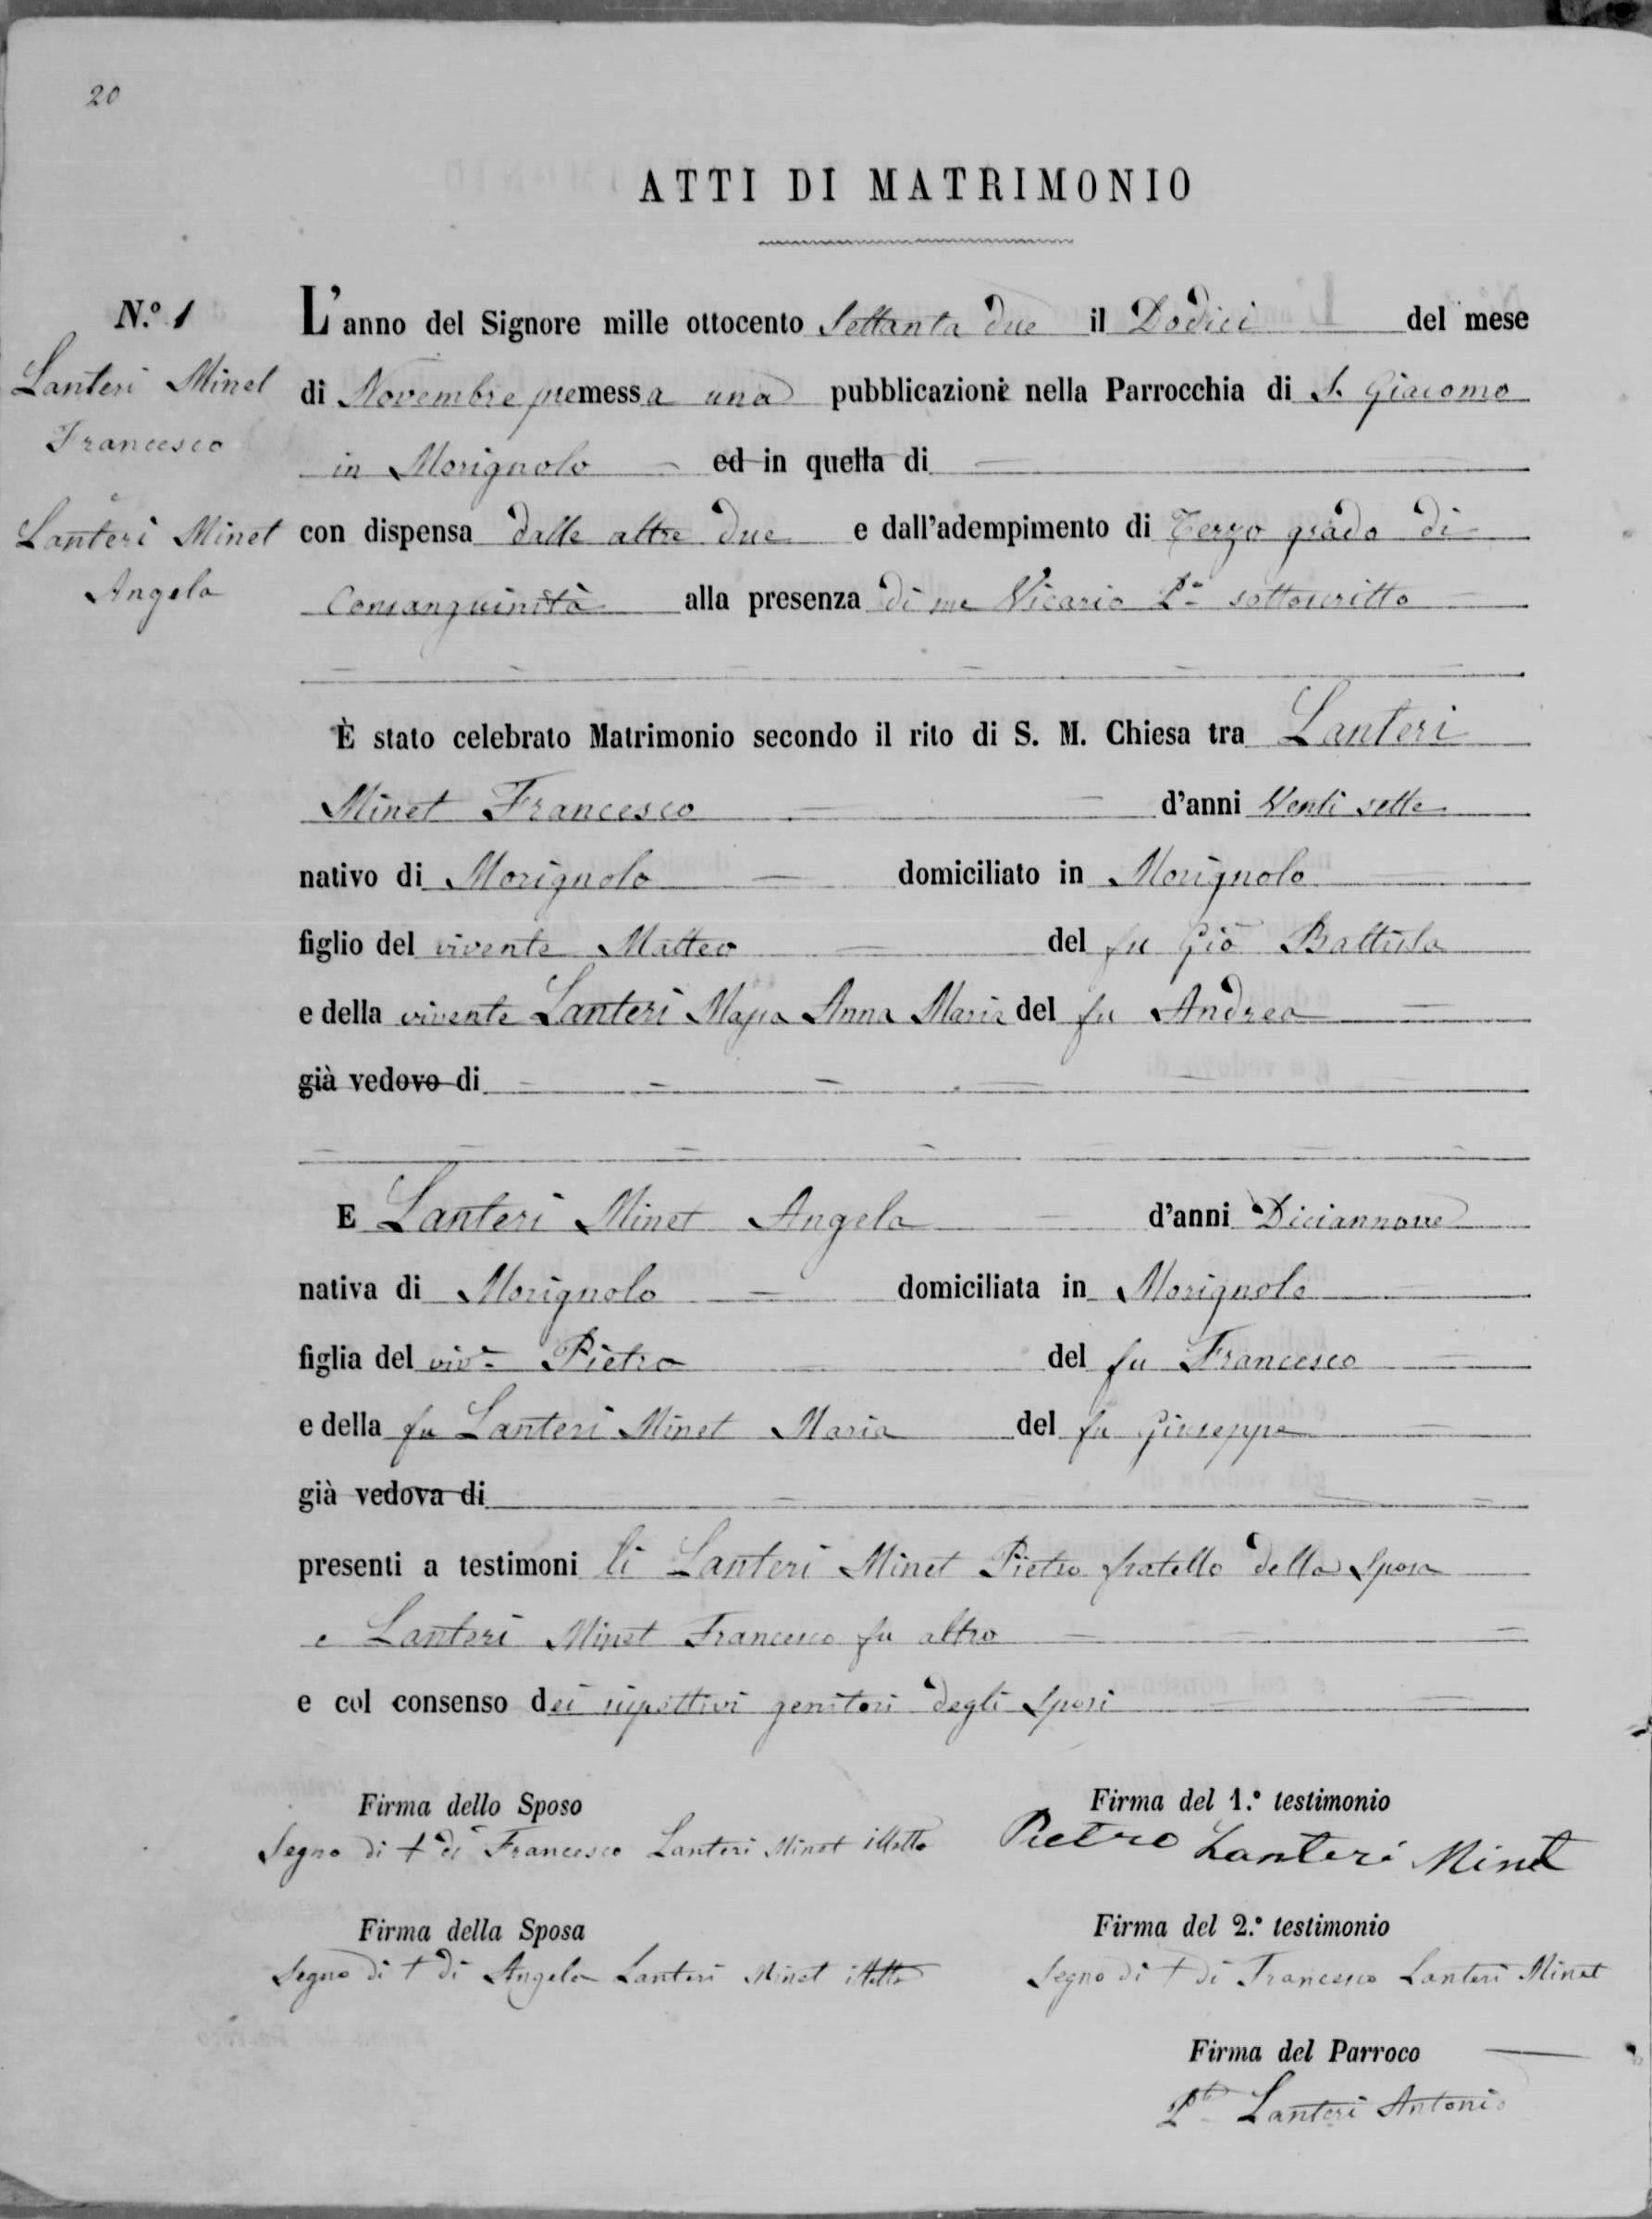 20
ATTI DI MATRIMONIO
N.º 1
Lanteri Minet
Francesco
Lanteri Minet
Angela
L'anno del Signore mille ottocento Settanta due il Dodici del mese
di Novembre premessa una pubblicazione nella Parrocchia di S. Giacomo
in Morignolo ed in quella di
con dispensa dalle altre due e dall'adempimento di Terzo grado di
Consanguinità alla presenza di me Vicario sottoscritto
È stato celebrato Matrimonio secondo il rito di S. M. Chiesa tra Lanteri
Minet Francesco d'anni Venti sette
nativo di Morignolo domiciliato in Morignolo
figlio del vivente Matteo del fu Gio Battista
e della vivente Lanteri Anna Maria del fu Andrea
già vedovo di
E Lanteri Minet Angela d'anni Diciannove
nativa di Morignolo domiciliata in Morignolo
figlia del viv.e Pietro del fu Francesco
e della fu Lanteri Minet Maria del fu Giuseppe
già vedova di
presenti a testimoni li Lanteri Minet Pietro fratello della Sposa
e Lanteri Minet Francesco fu altro
e col consenso dei rispettivi genitori degli Sposi
Firma dello Sposo
Segno di + di Francesco Lanteri Minet illetto
Firma del 1.º testimonio
Pietro Lanteri Minet
Firma della Sposa
Segno di + di Angela Lanteri Minet illetta
Firma del 2.º testimonio
Segno di + di Francesco Lanteri Minet
Firma del Parroco
Lanteri Antonio